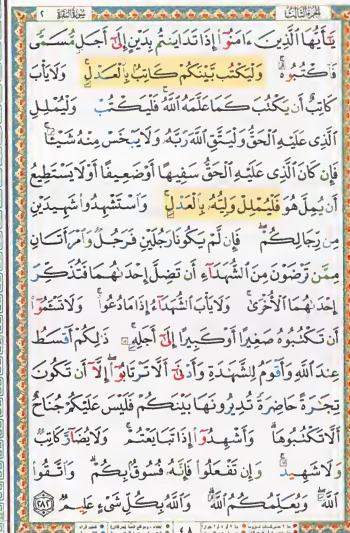 الجزء الثالث سورة البقرة ٢
يَٰٓأَيُّهَا ٱلَّذِينَ ءَامَنُوٓا۟ إِذَا تَدَايَنتُم بِدَيْنٍ إِلَىٰٓ أَجَلٍ مُّسَمًّى
فَٱكْتُبُوهُ ۚ وَلْيَكْتُب بَّيْنَكُمْ كَاتِبٌۢ بِٱلْعَدْلِ ۚ وَلَا يَأْبَ
كَاتِبٌ أَن يَكْتُبَ كَمَا عَلَّمَهُ ٱللَّهُ ۚ فَلْيَكْتُبْ وَلْيُمْلِلِ
ٱلَّذِى عَلَيْهِ ٱلْحَقُّ وَلْيَتَّقِ ٱللَّهَ رَبَّهُۥ وَلَا يَبْخَسْ مِنْهُ شَيْـًٔا ۚ
فَإِن كَانَ ٱلَّذِى عَلَيْهِ ٱلْحَقُّ سَفِيهًا أَوْ ضَعِيفًا أَوْ لَا يَسْتَطِيعُ
أَن يُمِلَّ هُوَ فَلْيُمْلِلْ وَلِيُّهُۥ بِٱلْعَدْلِ ۚ وَٱسْتَشْهِدُوا۟ شَهِيدَيْنِ
مِن رِّجَالِكُمْ ۖ فَإِن لَّمْ يَكُونَا رَجُلَيْنِ فَرَجُلٌ وَٱمْرَأَتَانِ
مِمَّن تَرْضَوْنَ مِنَ ٱلشُّهَدَآءِ أَن تَضِلَّ إِحْدَىٰهُمَا فَتُذَكِّرَ
إِحْدَىٰهُمَا ٱلْأُخْرَىٰ ۚ وَلَا يَأْبَ ٱلشُّهَدَآءُ إِذَا مَا دُعُوا۟ ۚ وَلَا تَسْـَٔمُوٓا۟
أَن تَكْتُبُوهُ صَغِيرًا أَوْ كَبِيرًا إِلَىٰٓ أَجَلِهِۦ ۚ ذَٰلِكُمْ أَقْسَطُ
عِندَ ٱللَّهِ وَأَقْوَمُ لِلشَّهَٰدَةِ وَأَدْنَىٰٓ أَلَّا تَرْتَابُوٓا۟ ۖ إِلَّآ أَن تَكُونَ
تِجَٰرَةً حَاضِرَةً تُدِيرُونَهَا بَيْنَكُمْ فَلَيْسَ عَلَيْكُمْ جُنَاحٌ
أَلَّا تَكْتُبُوهَا ۗ وَأَشْهِدُوٓا۟ إِذَا تَبَايَعْتُمْ ۚ وَلَا يُضَآرَّ كَاتِبٌ
وَلَا شَهِيدٌ ۚ وَإِن تَفْعَلُوا۟ فَإِنَّهُۥ فُسُوقٌۢ بِكُمْ ۗ وَٱتَّقُوا۟
ٱللَّهَ ۖ وَيُعَلِّمُكُمُ ٱللَّهُ ۗ وَٱللَّهُ بِكُلِّ شَىْءٍ عَلِيمٌ ٢٨٢
٤٨